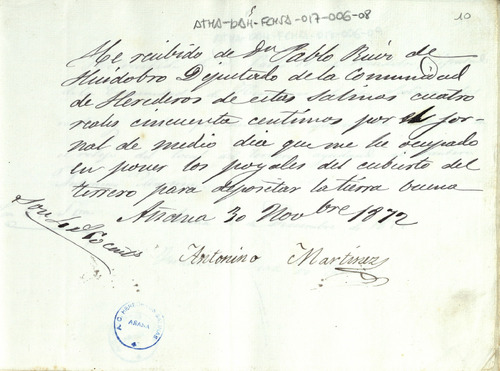 ATHA-DAH-FONA-017-006-08
10
He recibido de Dn Pablo Ruiz de
Huidobro Diputado de la Comunidad
de Herederos de estas Salinas cuatro
reales cincuenta centimos por el jor-
nal de medio dia que me he ocupado
en poner los poyales del cubierto del
terrero para depositar la tierra buena
Añana 30 Novbre 1872
Son
Antonino Martinez
AÑANA